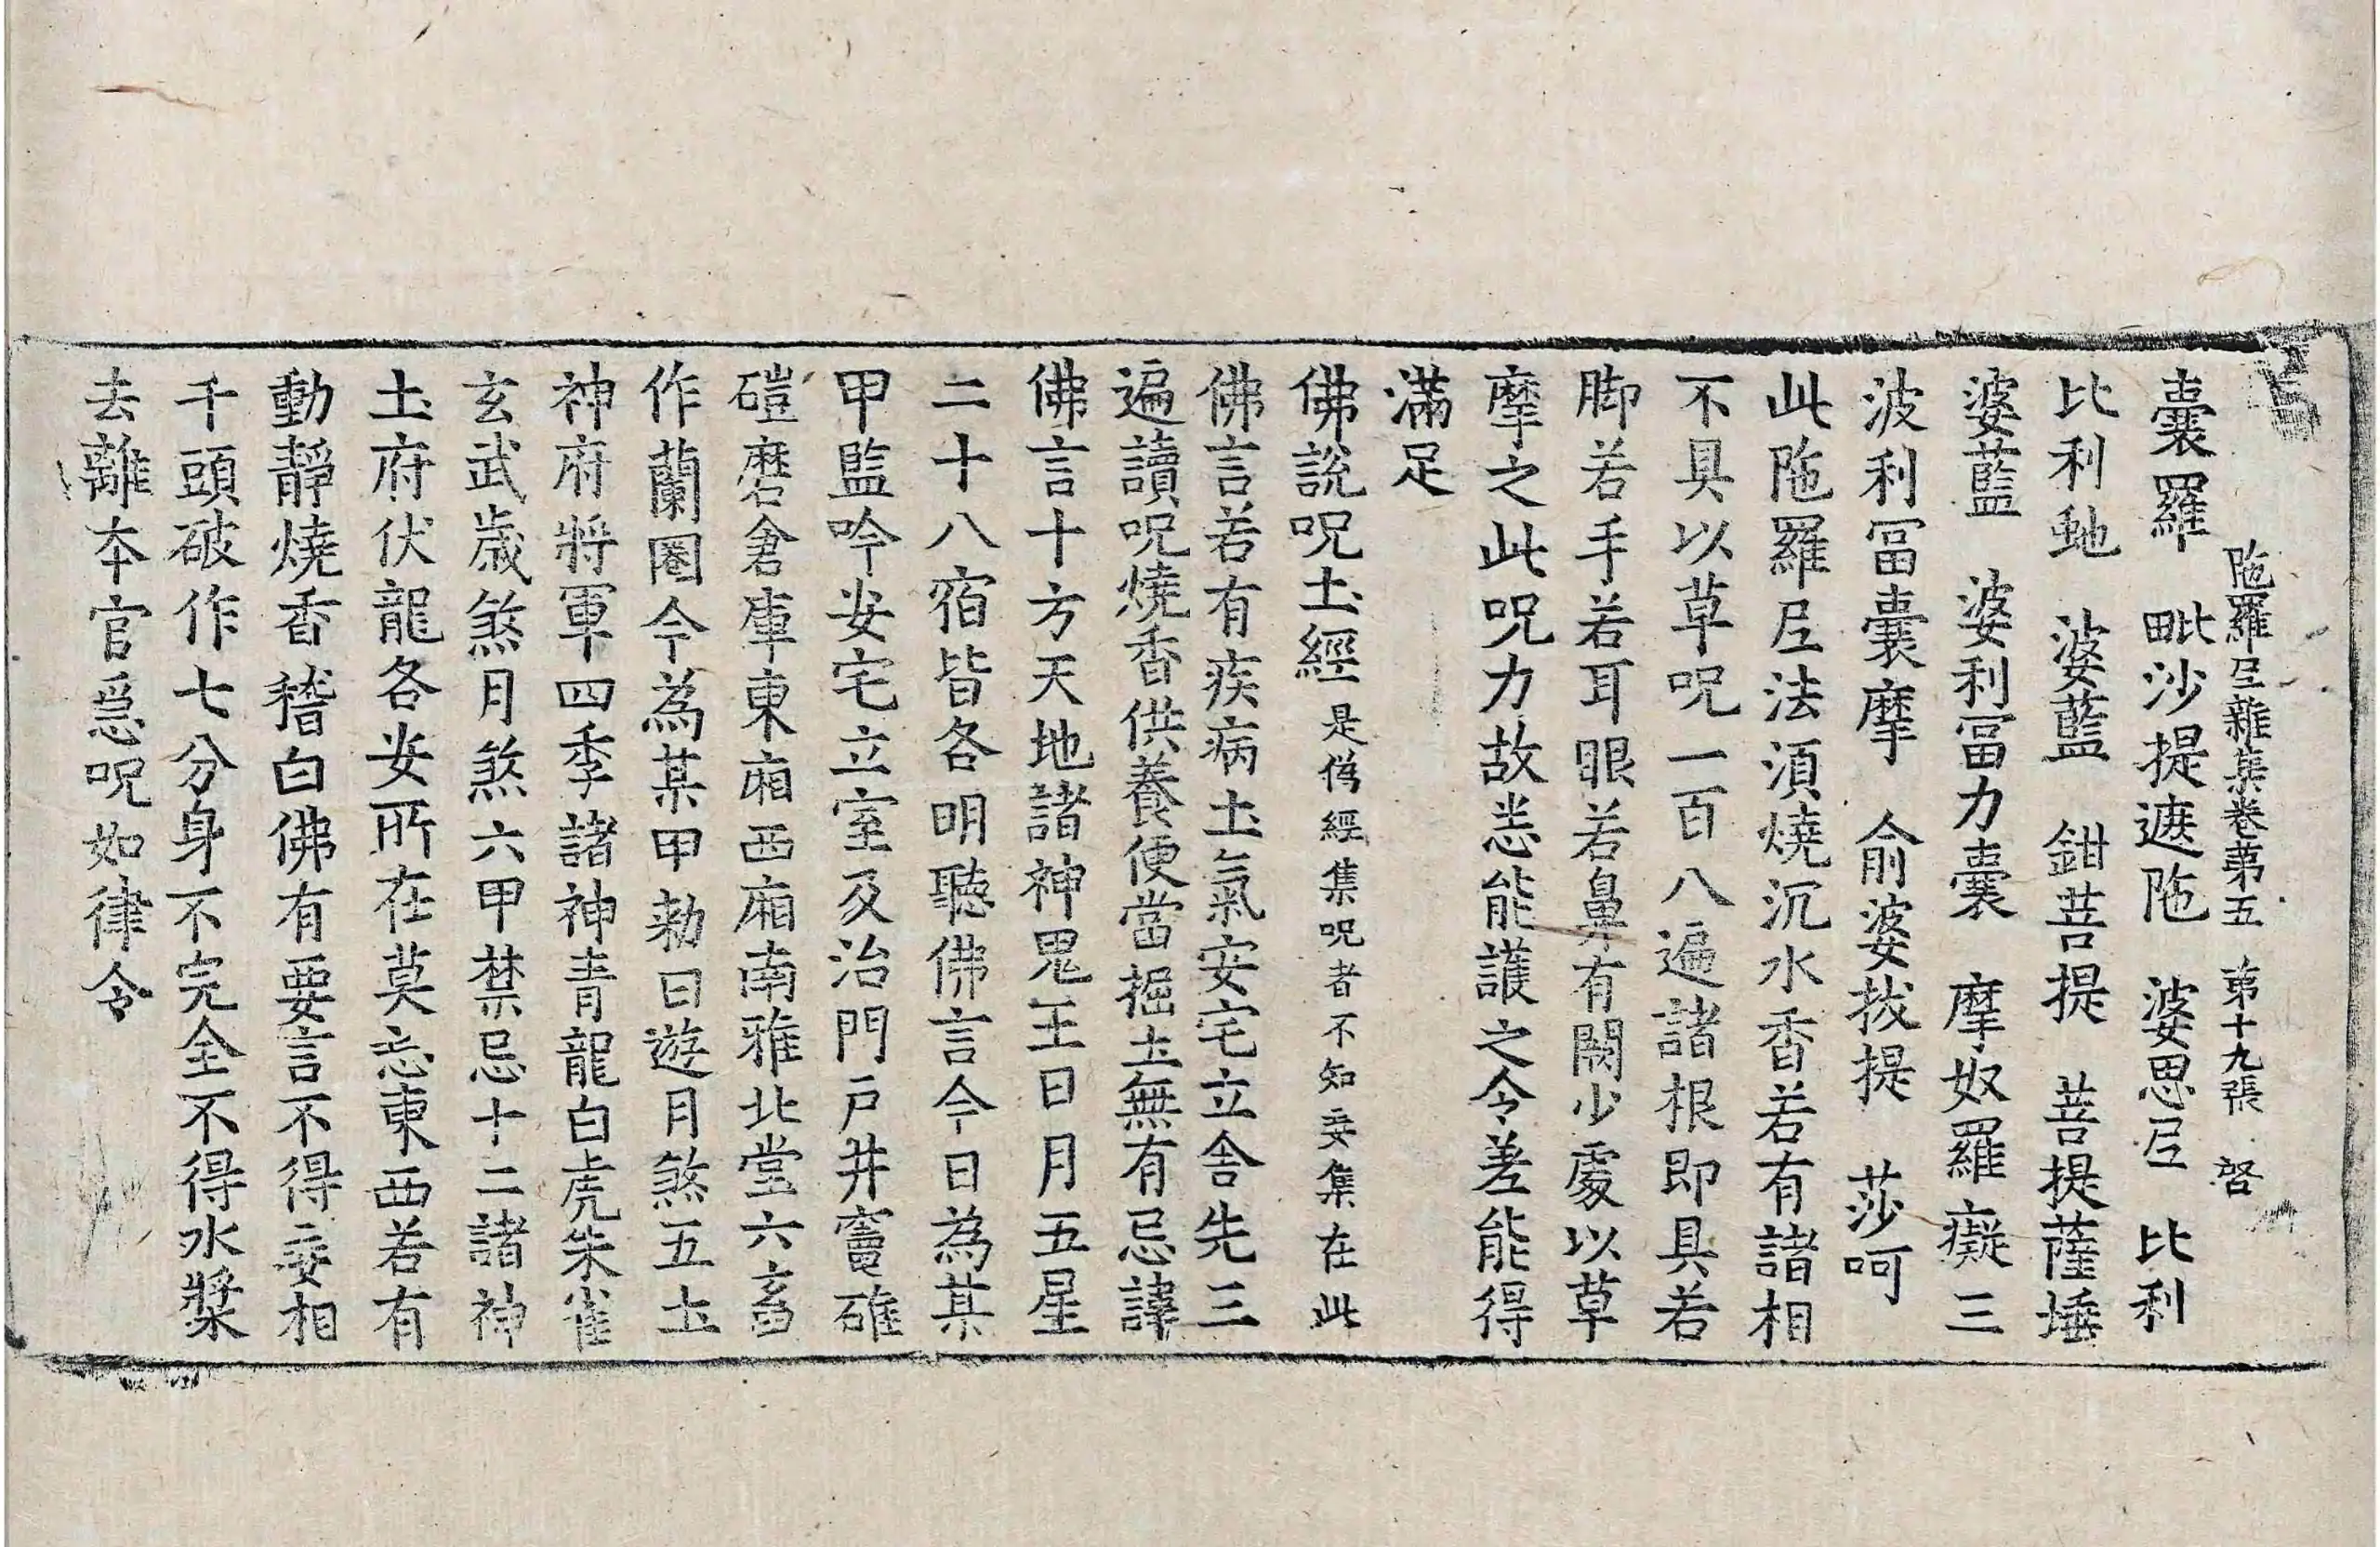 陁羅𡰱雜集卷第五 第十九張 啓
囊羅 毗沙提遮陁 婆思𡰱 比利
比利虵 婆藍 鉗菩提 菩提薩埵
婆藍 婆利冨力囊 摩奴羅癡三
波利冨囊摩 俞婆拔提 莎呵
此陁羅𡰱法須燒沉水香若有諸相
不具以草呪一百八遍諸根即具若
脚若手若耳眼若鼻有闕少處以草
摩之此呪力故悉能護之令差能得
滿足
佛說呪土經是僞經集呪者不知妄集在此
佛言若有疾病土氣安宅立舍先三
遍讀呪燒香供養便當掘土無有忌諱
佛言十方天地諸神鬼王日月五星
二十八宿皆各明聽佛言今日為某
甲監吟安宅立室及治門戶井竈碓
磑磨倉庫東廂西廂南雅北堂六畜
作蘭圈今為某甲勑日遊月煞五土
神府將軍四季諸神青龍白虎朱雀
玄武歲煞月煞六甲禁忌十二諸神
土府伏龍各安所在莫忘東西若有
動靜燒香稽白佛有要言不得妄相
千頭破作七分身不完全不得水漿
去離本官急呪如律令